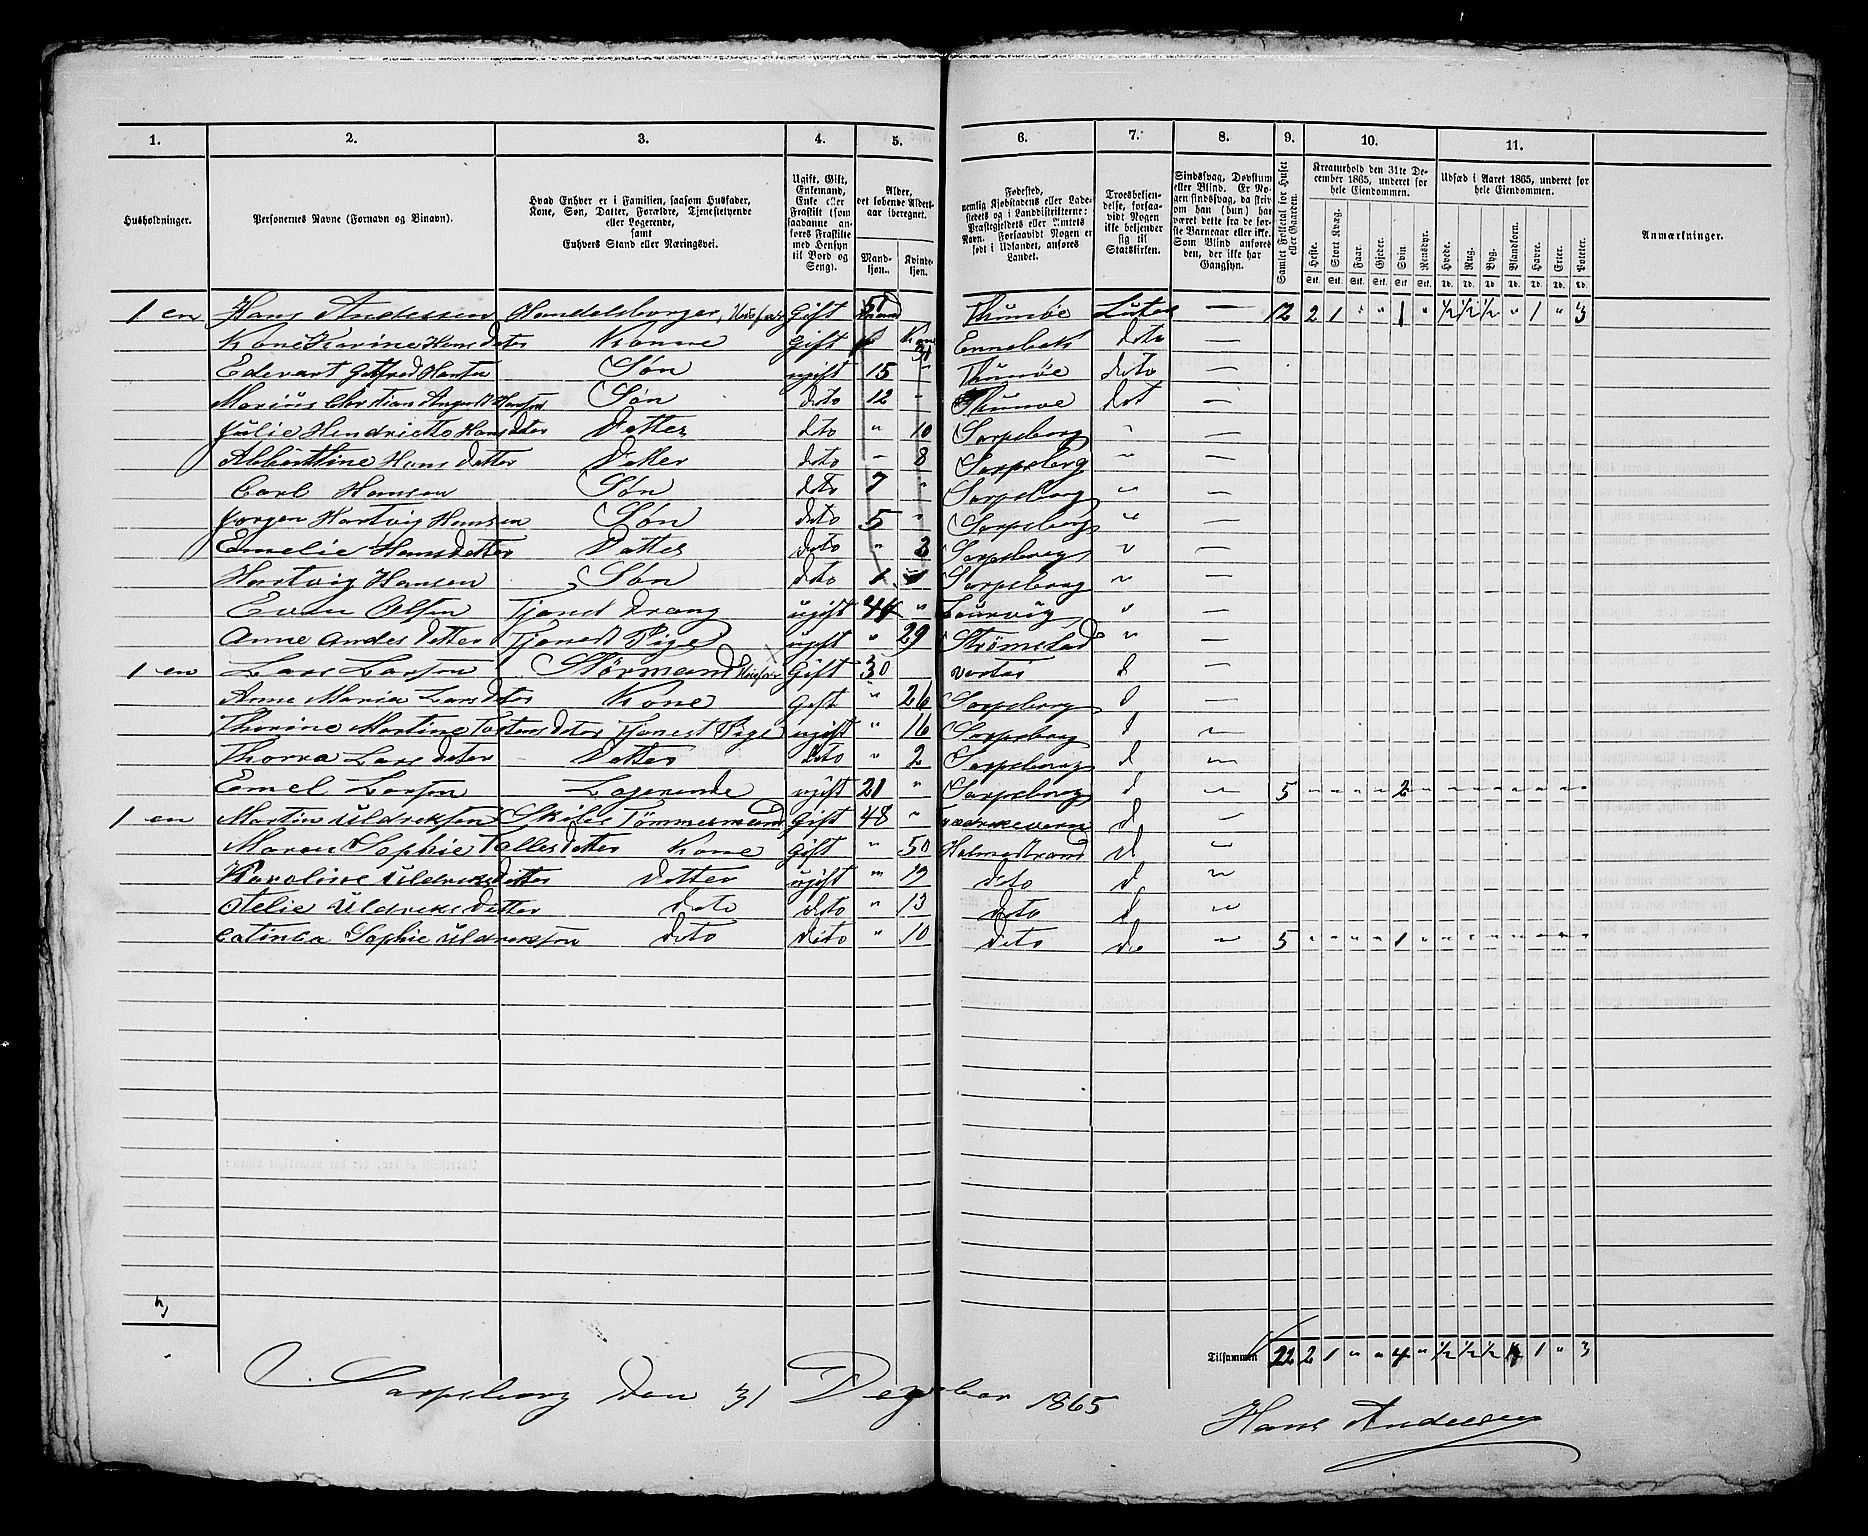 1. 2. 3. 4. 5. 6. 7. 8. 9. 10. 11.
Husholdninger.
Personernes Navne (Fornavn og Binavn).
Hvad Enhver er i Familien, saasom Husfader, Kone, Søn, Datter, Forældre, Tjenestetyende eller Logerende, samt Enhvers Stand eller Næringsvei.
Ugift, Gift, Enkemand, Enke eller Fraskilt (som saadanne anføres Fraskilte med Hensyn til Bord og Seng).
Alder, det løbende Aldersaar iberegnet.
Mandkjøn. Kvindekjøn.
Fødested, nemlig Kjøbstadens eller Ladestedets og i Landdistrikterne: Præstegjeldets eller Amtets Navn. Forsaavidt Nogen er født i Udlandet, anføres Landet.
Troesbekjendelse, forsaavidt Nogen ikke bekjender sig til Statskirken.
Sindssvag, Døvstum eller Blind. Er Nogen sindssvag, da skriv om han (hun) har været dette fra de første Barneaar eller ikke. Som Blind anføres den, der ikke har Gangsyn.
Samlet Folketal for Huset eller Gaarden.
Kreaturhold den 31te December 1865, underet for hele Eiendommen.
Heste. Stort Kvæg. Faar. Gjeder. Svin. Rensdyr.
Stk. Stk. Stk. Stk. Stk. Stk.
Udsæd i Aaret 1865, underet for hele Eiendommen.
Hvede. Rug. Byg. Blandkorn. Havre. Erter. Poteter.
Td. Td. Td. Td. Td. Td. Td.
Anmærkninger.
1 en Hans Andersen Handelsborger, Husfader Gift 51 Thunøe Luter — 12 2 1 " " 1 " ½ ½ ½ " 1 " 3
Kone Karine Hansdater Konne Gift Kone 31 Ennebak deto —
Edevart Gotfred Hansen Søn ugift 15 " Thunøe deto —
Marius Christian August Hansen Søn deto 12 " Thunøe det —
Julie Hendriette Hansdater Datter deto " 10 Sarpsborg " —
Albertine Hansdatter Datter deto " 8 Sarpsborg " —
Carl Hansen Søn deto 7 " Sarpsborg " —
Jørgen Hartvig Hansen Søn deto 5 " Sarpsborg " —
Emelie Hansdatter Datter deto " 3 Sarpsborg " —
Hartvig Hansen Søn deto 1 Sarpsborg " —
Even Olsen Tjenst Dræng ugift 44 " Laurvig " —
Anne Andersdatter Tjenest Pige ugift " 29 Strømstad " —
1 en Lars Larsen Størmand Husfader Gift 30 d —
Anne Maria Larsdater Kone Gift " 26 Sarpsborg d —
Thorine Martine Tostensdater Tjenest Pige ugift " 16 Sarpsborg d —
Thora Larsdater Datter deto " 2 Sarpsborg d —
Emel Larsen Logerende ugift 21 " Sarpsborg d — 5 " " " " 2 " " " " " " " "
1 en Martin Uldreksen Skibs Tømmermand Gift 48 " Fredreksvern d —
Maren Sophie Tallesdatter Kone Gift " 50 Holmestrand d —
Karoline Uldreksdatter datter ugift " 19 deto d —
Otelie Uldreksdatter deto deto " 13 deto d —
Catinca Sophie Uldreksen deto deto " 10 deto do — 5 " " " " 1 " " " " " " " "
3
Tilsammen 22 2 1 " " 4 " ½ ½ ½ 1 " 3
Sarpsborg den 31 Dezember 1865
Hans Andersen